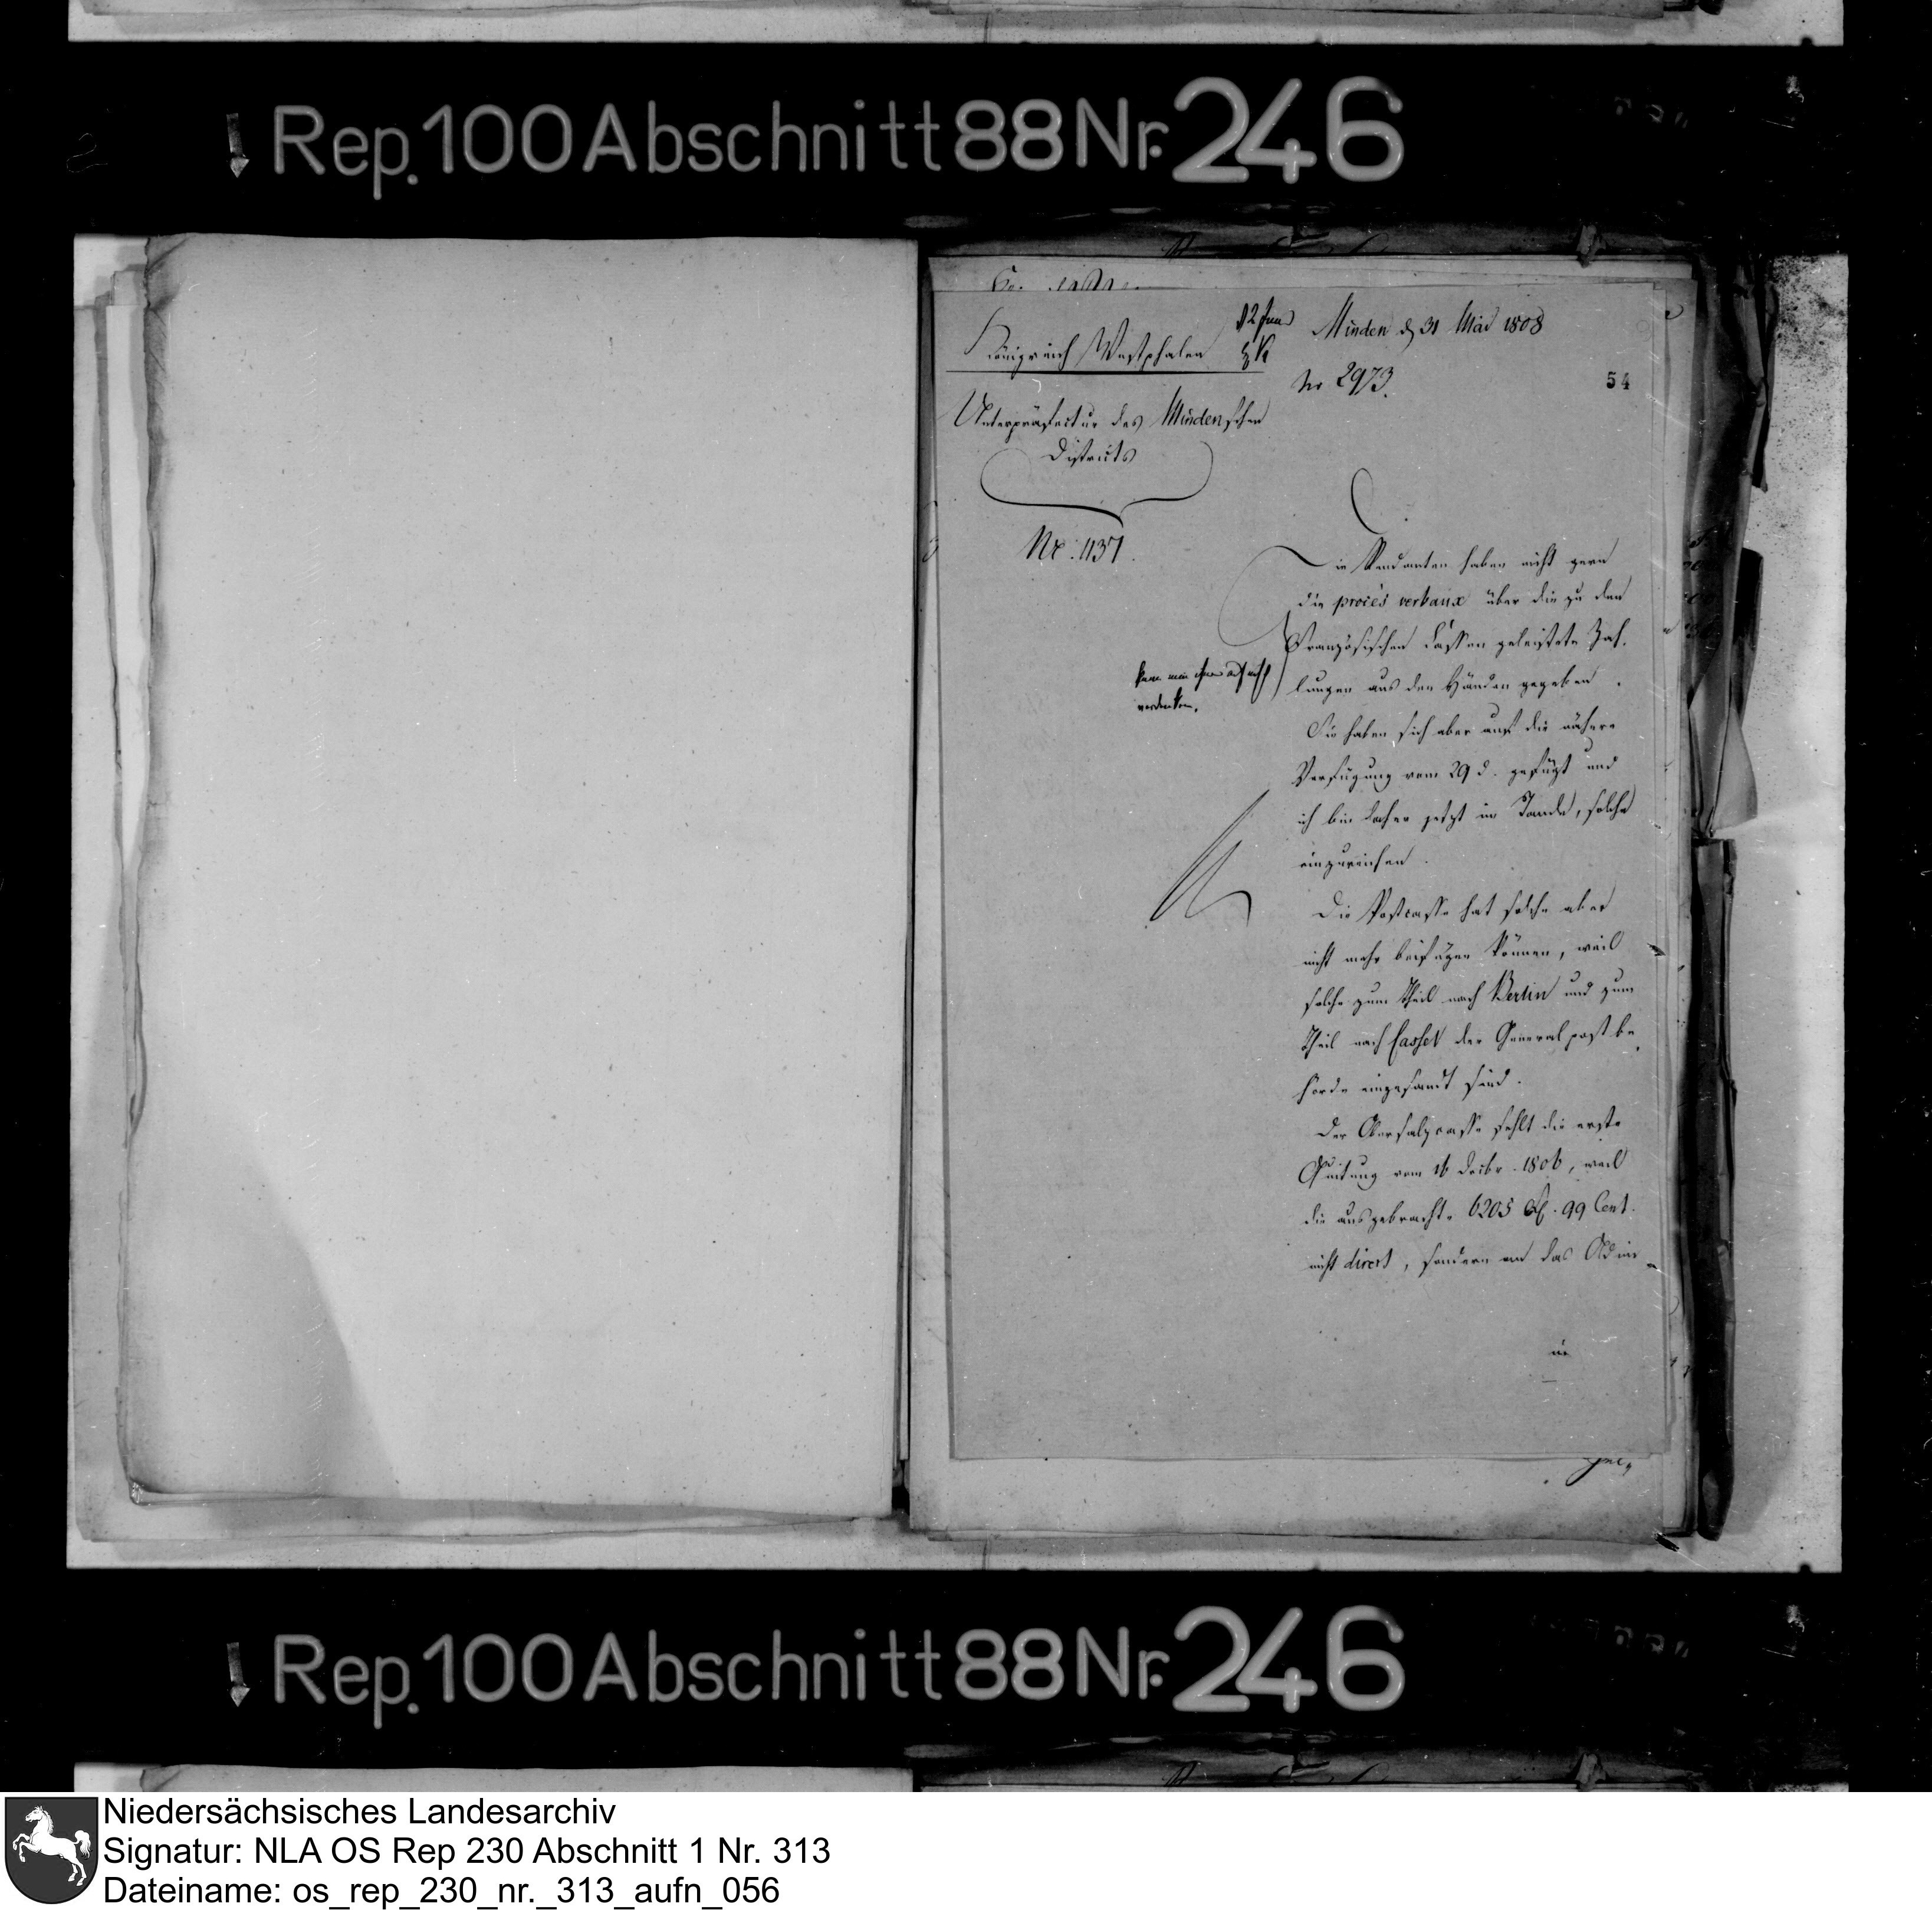 Rep. 100 Abschnitt 88 Nr. 246
Königreich Westphalen
Unterpräfectur des Mindenschen
Districts
Nr. 1137.
Minden d 31 Mai 1808
No 2973.
54
Die Rendanten haben nicht gern
die procès verbaux über die zu den
Französischen Cassen geleistete Zah-
lungen aus den Händen gegeben.
verdenken.
Sie haben sich aber auf die nähere
Verfügung vom 29 d. gefügt und
ich bin daher jetzt im Stande, solche
einzureichen.
Die Postcasse hat solche aber
nicht mehr beifügen können, weil
solche zum Theil nach Berlin und zum
Theil nach Cassel der General post be
hörde eingesandt sind.
Der Obersalzcasse fehlt die erste
Quitung vom 16 Decbr. 1806, weil
die ausgebrachte 6205 99 Cent.
nicht direct, sondern an das
Rep. 100 Abschnitt 88 Nr. 246
Niedersächsisches Landesarchiv
Signatur: NLA OS Rep 230 Abschnitt 1 Nr. 313
Dateiname: os_rep_230_nr._313_aufn_056